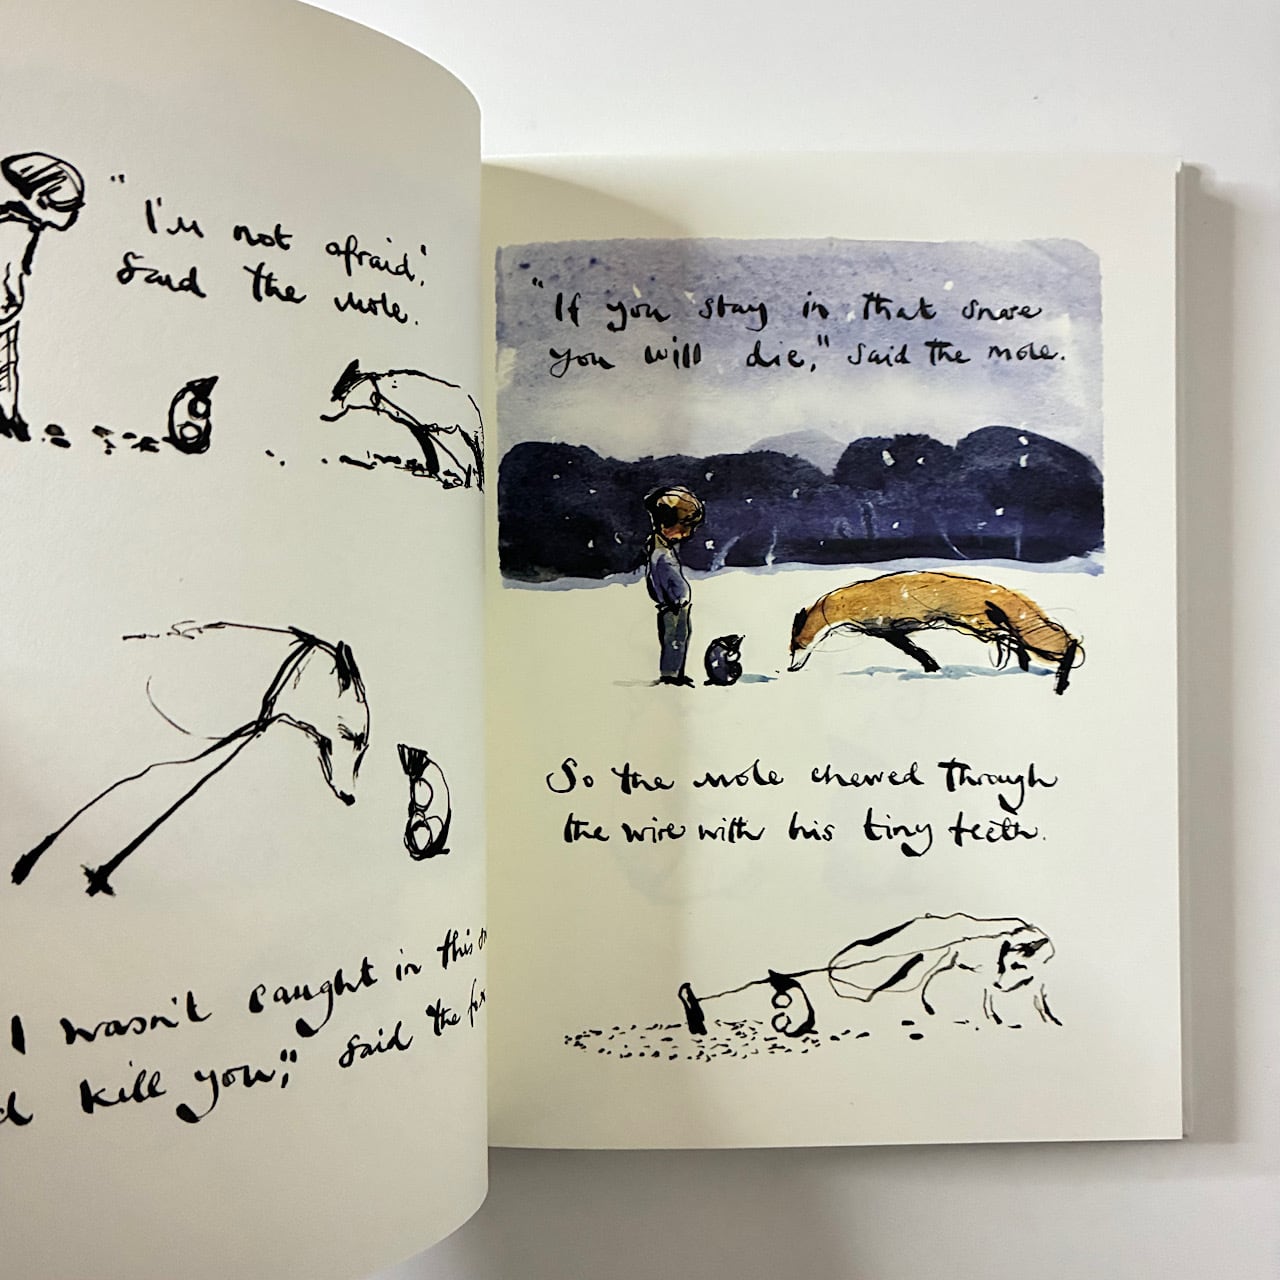 "I'm not afraid,'
said the mole.
I wasn't caught in this
kill you," said the fox
"If you stay in that snare
you will die," said the mole.
So the mole chewed through
the wire with his tiny teeth.